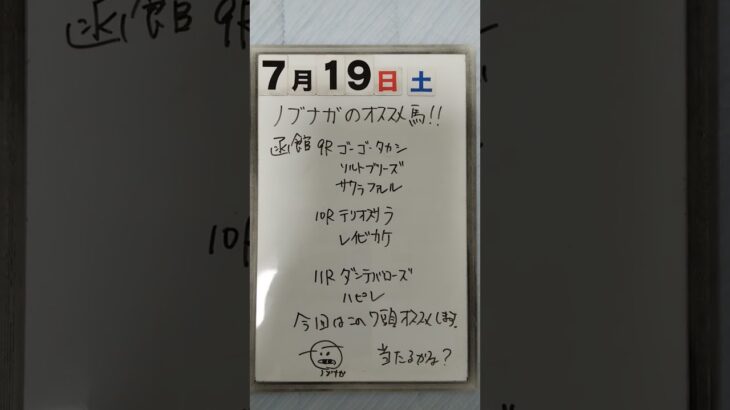 7月19日土
ノブナガのオススメ馬!!
函館 9R ゴーゴータカシ
ソルトブリーズ
サクラファレル
10R テリオスサラ
レイピカケ
11R ダンテバローズ
ハピレ
今回はこの7頭オススメします。
当たるかな?
ノブナガ
函館 9R
10R